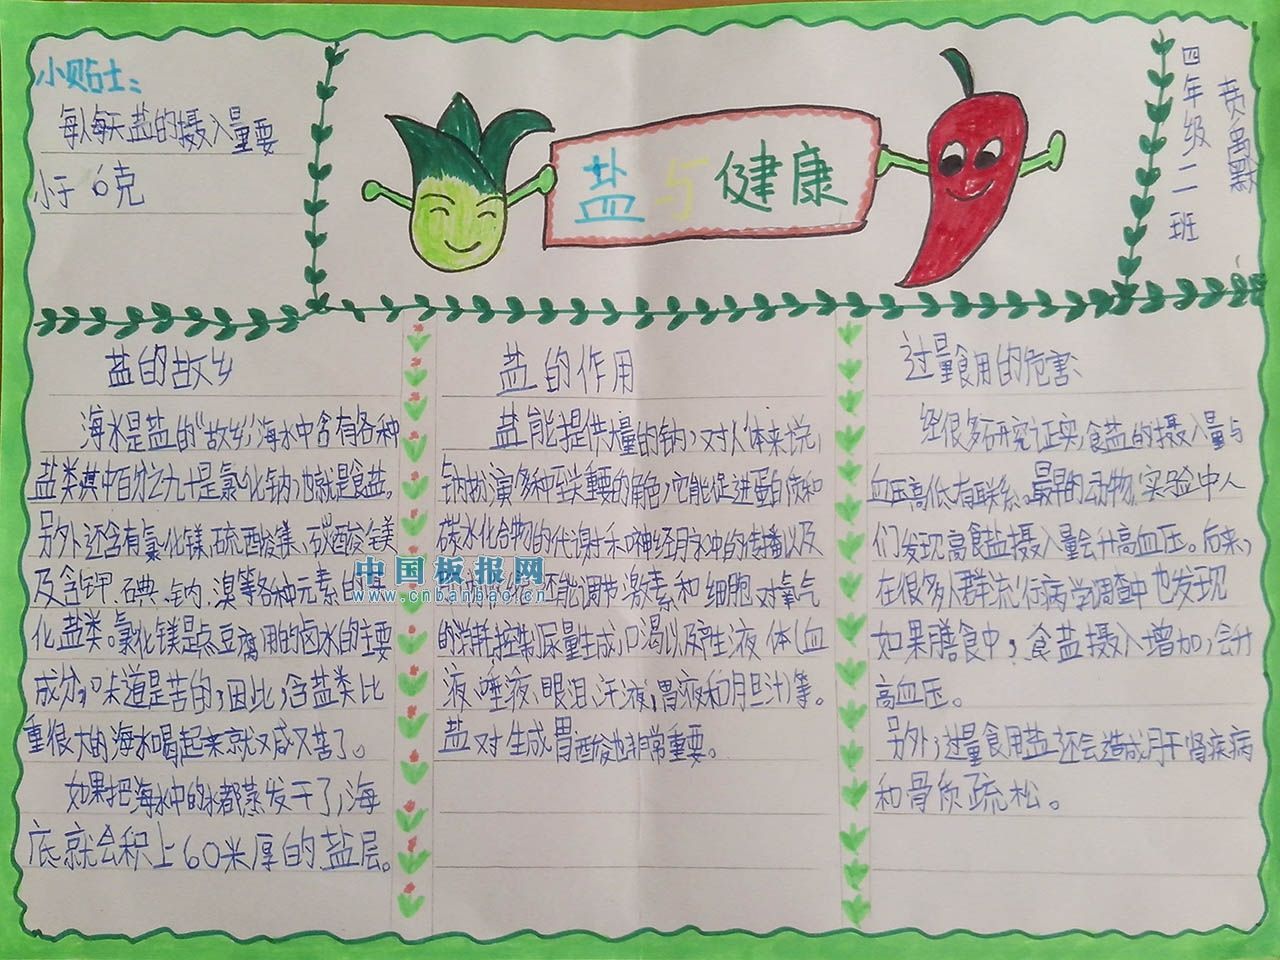 小贴士：
每人每天盐的摄入量要
小于6克
盐与健康
四年级二班
盐的故乡
海水是盐的“故乡”，海水中含有各种
盐类，其中百分之九十是氯化钠，也就是食盐。
另外还含有氯化镁、硫酸镁、碳酸镁
及含钾、碘、钠、溴等各种元素的
化盐类。氯化镁是点豆腐用的卤水的主要
成分，味道是苦的，因此，含盐类比
重很大的海水喝起来就又咸又苦了。
如果把海水中的水都蒸发干了，海
底就会积上60米厚的盐层。
盐的作用
盐能提供大量的钠，对人体来说，
钠扮演多种至关重要的角色，它能促进蛋白质和
碳水化合物的代谢于和神经脉冲的传播以及
还能调节激素和细胞对氧气
的消耗，控制尿量生成，口渴以及产生液体（血
液、唾液、眼泪、汗液，胃液和胆汁）等。
盐对生成胃酸也非常重要。
过量食用的危害：
经很多研究证实，食盐的摄入量与
血压高低有联系。最早的动物实验中人
们发现高食盐摄入量会升高血压。后来，
在很多人群流行病学调查中也发现
如果膳食中，食盐摄入增加，会升
高血压。
另外，过量食用盐还会造成肝肾疾病
和骨质疏松。
中国板报网
www.cnbanbao.cn